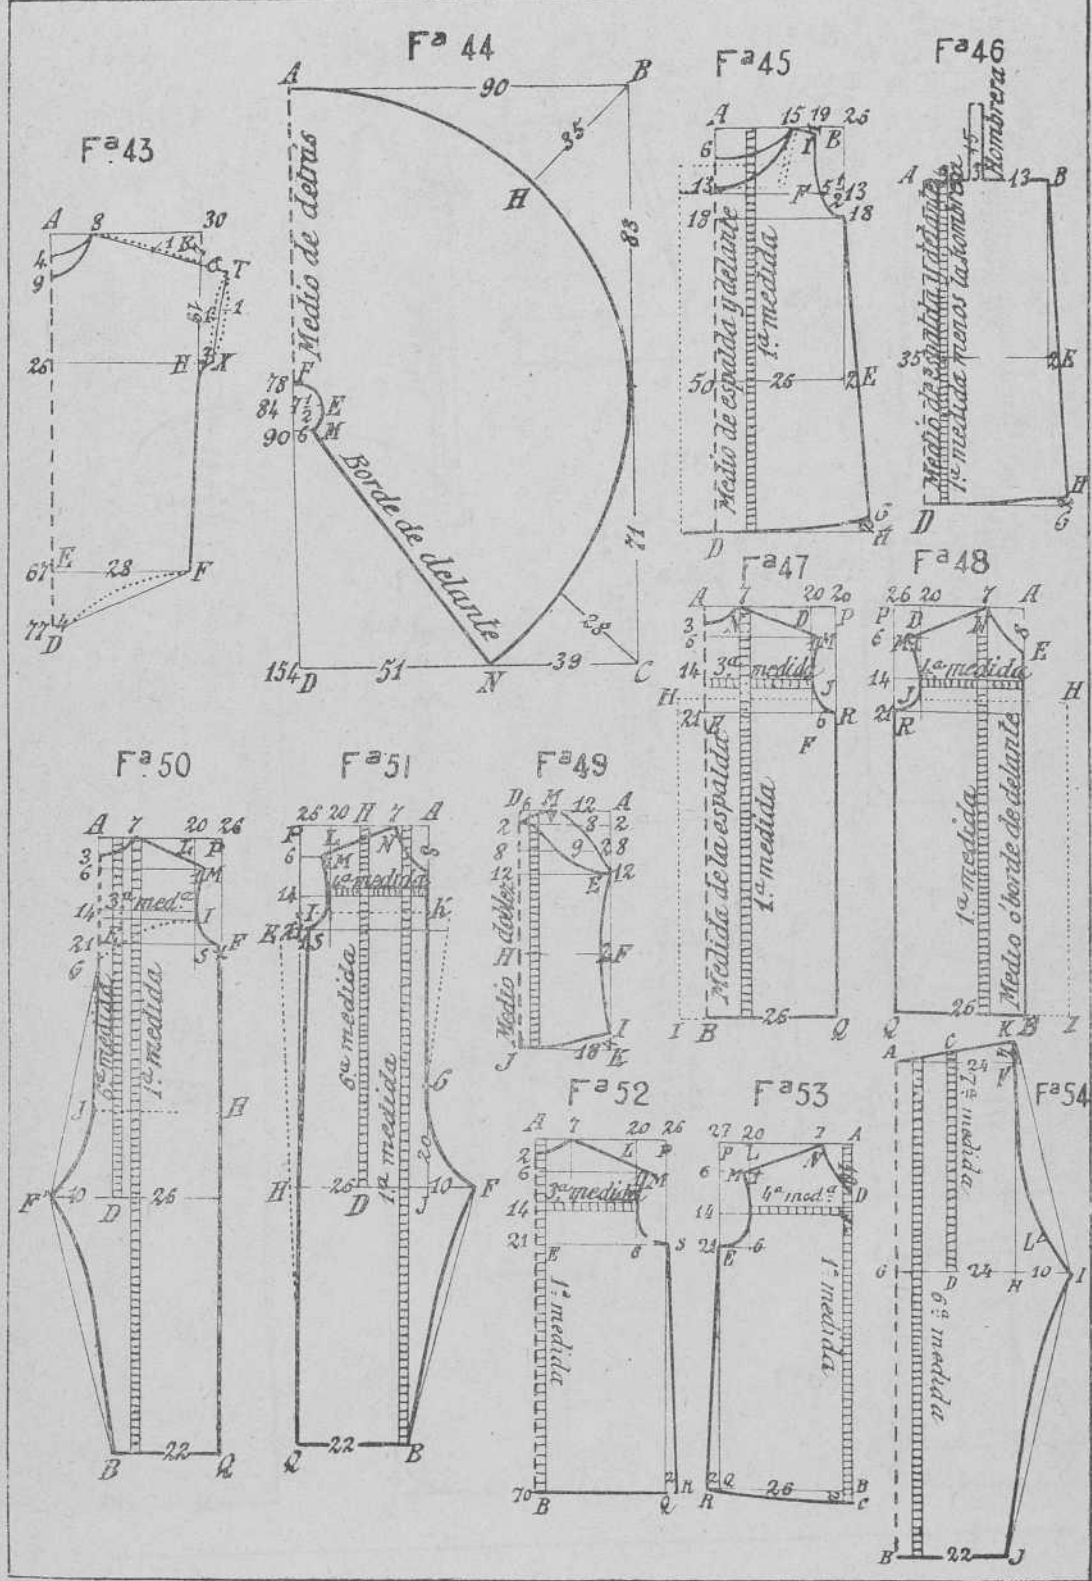 Fª 43
A 8 30
4
9
1 B
T
19
1
26 H X
67 E 28 F
77 4
D
Fª 44
A 90 B
35
H
83
Medio de detrás
78 F
84 7 1/2 E
90 6 M
Borde de delante
71
28
154 D 51 N 39 C
Fª 45
A 15 19 26
6 I B
13 F 5 1/2 13
18 18
Medio de espalda y delante
1ª medida
50 26 2 E
G
D H
Fª 46
Hombrera
15
A 3 13 B
Medio de espalda y delante
1ª medida menos la hombrera
35 2 E
H
D 2 G
Fª 47
A 7 20 20
3 N D P
6 M
14 3ª medida J
H
21 E 6 R
F
Medida de la espalda
1ª medida
I B 26 Q
Fª 48
26 20 7 A
P D N S
6 M E
14 1ª medida
J H
21 R
1ª medida
Medio ó borde de delante
26
Q B I
Fª 49
D 6 M 12 A
2 8 2
8 9 28
12 E 12
Medio
H 2 F
I
J 18 K
Fª 50
A 7 20 26
3 L P
6 M
14 3ª med.ª I
21 E S F
G
6ª medida
1ª medida
J H
F 10 D 26
B 22 Q
Fª 51
26 20 H 7 A
P L N S
6 M
14 4ª medida
I K
E 21 S
6ª medida
1ª medida
G
20
H 26 D J 10 F
Q 22 B
Fª 52
A 7 20 26
2 L P
6 M
3ª medida
14
21 E 6 S
1ª medida
2 R
70 B Q
Fª 53
27 20 7 A
P L N
6 M D
4ª med.ª
14
21 E 6
1ª medida
2 Q 26 B
R 2 C
Fª 54
K
A C 4
24 F
7ª medida
L
G D 24 H 10 I
6ª medida
B 22 J